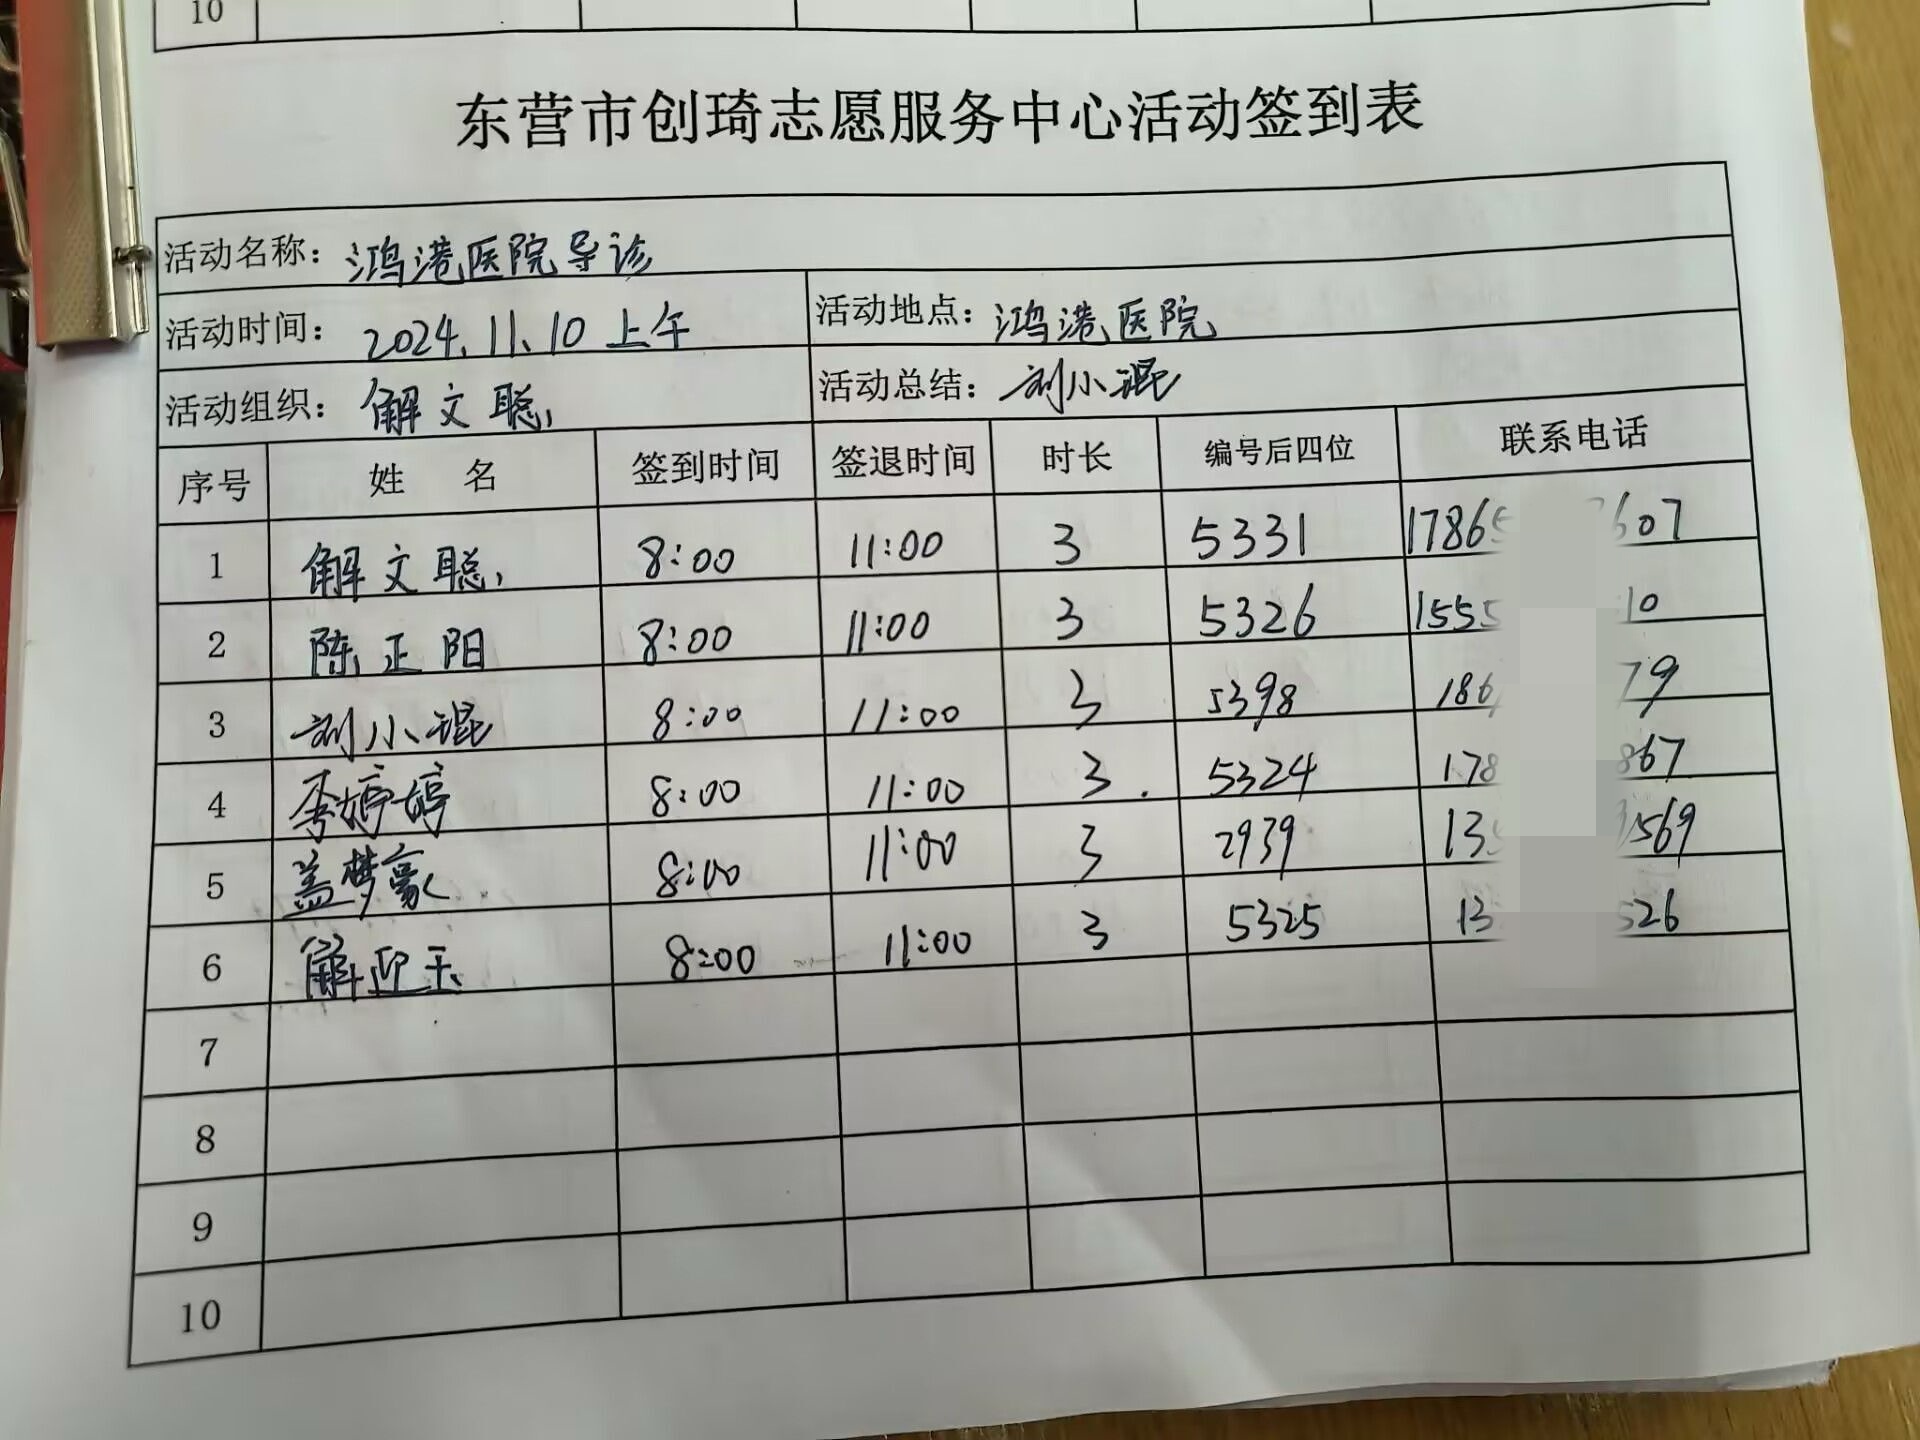 10
东营市创琦志愿服务中心活动签到表
活动名称：鸿港医院导诊
活动时间：2024.11.10上午 活动地点：鸿港医院
活动组织：解文聪 活动总结：刘小混
序号 姓 名 签到时间 签退时间 时长 编号后四位 联系电话
1 解文聪 8:00 11:00 3 5331 1786 607
2 陈正阳 8:00 11:00 3 5326 1555 10
3 刘小混 8:00 11:00 3 5398 186 79
4 李婷婷 8:00 11:00 3 5324 178 867
5 盖梦豪 8:00 11:00 3 2939 13 569
6 解迎玉 8:00 11:00 3 5325 13 526
7
8
9
10